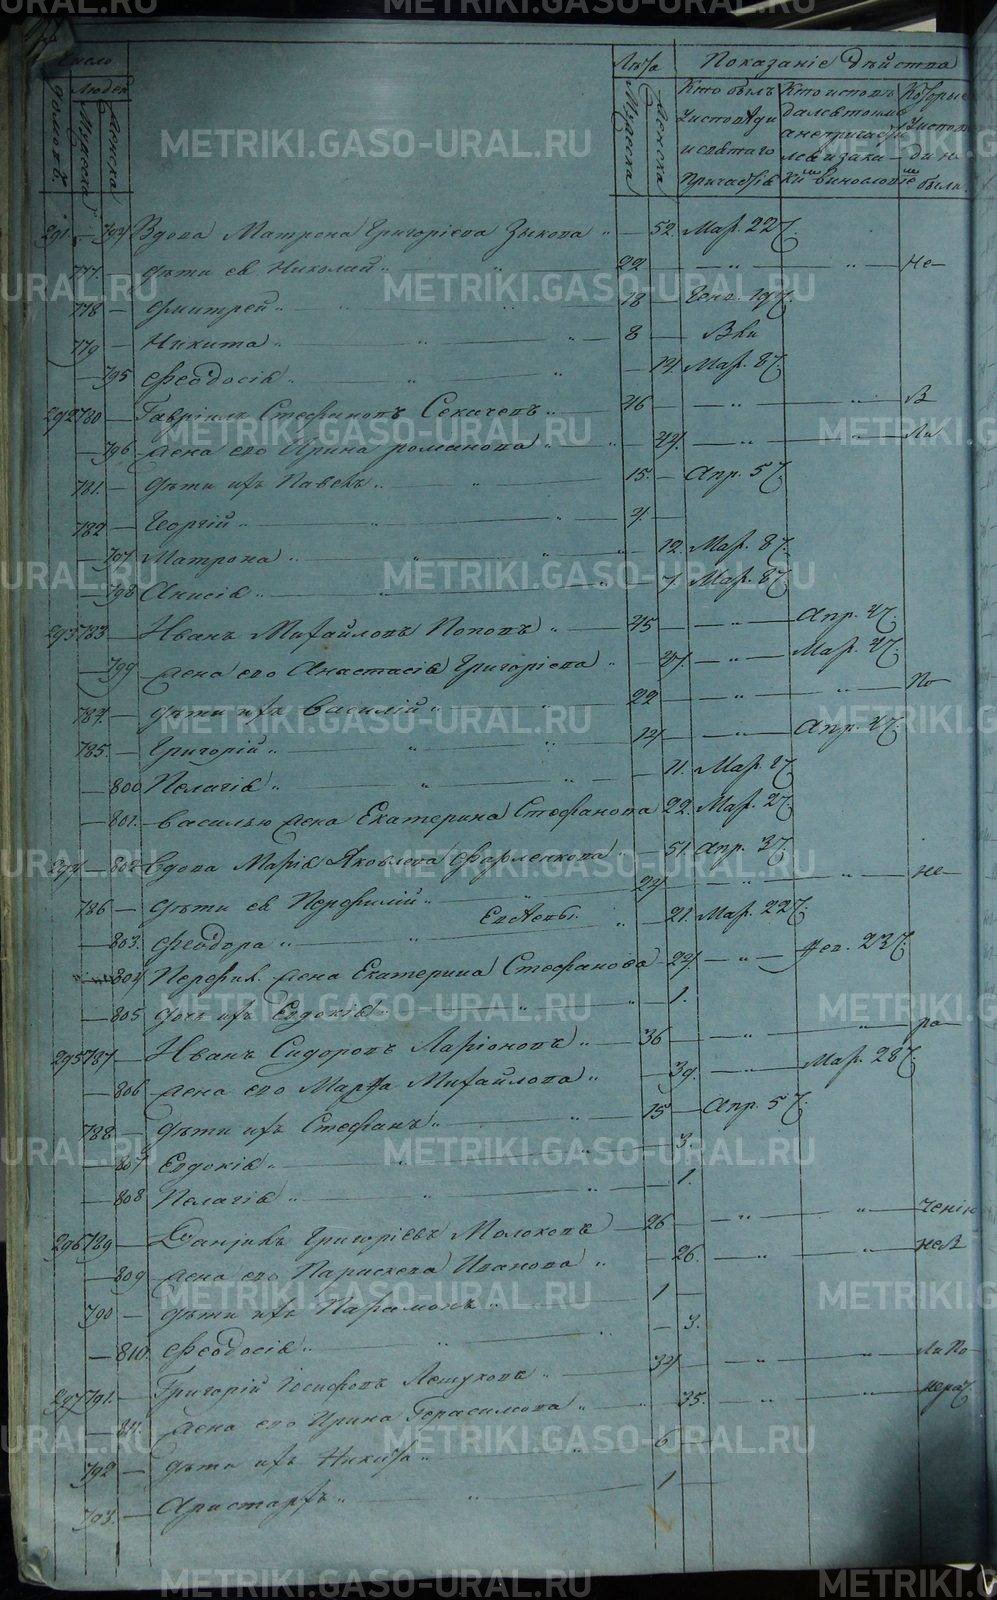 Число
Лѣта
Показанiе дѣйства
Людей
домовъ
Мужеска
Женска
Мужеска
Женска
Кто былъ
у исповѣди
и святаго
причастiя
Кто исповѣ
дался токмо
а не причасти
лся и за ка
кимъ виносло
Которые
у исповѣ
ди не
были
291 — 794 Вдова Матрона Григорiева Зыкова — 52 Мар. 22
777 — дѣти ея Николай 22 — Не
778 — Дмитрей 18 — Генв. 19
779 — Никита 8 —
— 795 Феодосiя — 14 Мар. 8
292 780 — Гаврiилъ Стефановъ Секачевъ 46 — В
— 796 жена его Ирина Романова — 44 — Ли
781 — дѣти ихъ Павелъ 15 — Апр. 5
782 — Георгiй 4 —
— 797 Матрона — 12 Мар. 8
— 798 Анисiя — 7 Мар. 8
293 783 — Иванъ Михайловъ Поповъ 45 — Апр. 4
— 799 жена его Анастасiя Григорiева — 47 — Мар. 4
784 — дѣти ихъ Василiй 22 — По
785 — Григорiй 14 — Апр. 4
— 800 Пелагiя — 11 Мар. 2
— 801 Василью жена Екатерина Стефанова 22 Мар. 2
294 — 802 Вдова Марiя Яковлева — 51 Апр. 3
786 — дѣти ея Перфилiй 24 — не
— 803 Феодора — 21 Мар. 22
— 804 Перфил. жена Екатерина Стефанова — 24 — Фев. 23
— 805 дочь ихъ Евдокiя — 1
295 787 — Иванъ Сидоровъ Ларiоновъ 36 — ра
— 806 жена его Марфа Михайлова — 39 — Мар. 28
788 — дѣти ихъ Стефанъ 15 — Апр. 5
— 807 Евдокiя — 3
— 808 Пелагiя — 1
296 789 — Данiилъ Григорiевъ Молоковъ 26 — ченiи
— 809 жена его Параскева Иванова — 26
790 — дѣти ихъ Парамонъ 1 —
— 810 Феодосiя — 3
297 791 — Григорiй Iосифовъ 34
— 811 жена его Ирина Герасимова — 35
792 — дѣти ихъ Никита 6
793 — Аристархъ 1 —
METRIKI.GASO-URAL.RU